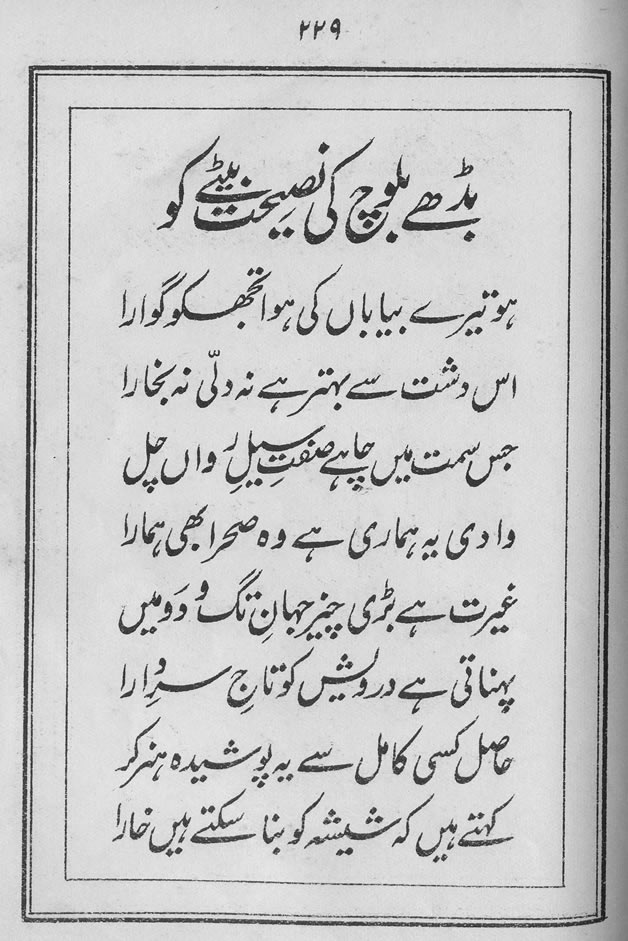 ۲۲۹
بڈھے بلوچ کی نصیحت بیٹے کو
ہو تیرے بیاباں کی ہوا تجھکو گوارا
اس دشت سے بہتر ہے نہ دلّی نہ بخارا
جس سمت میں چاہے صفتِ سیلِ رواں چل
وادی یہ ہماری ہے وہ صحرا بھی ہمارا
غیرت ہے بڑی چیز جہانِ تگ و دَو میں
پہناتی ہے درویش کو تاجِ سرِ دارا
حاصل کسی کامل سے یہ پوشیدہ ہنر کر
کہتے ہیں کہ شیشہ کو بنا سکتے ہیں خارا